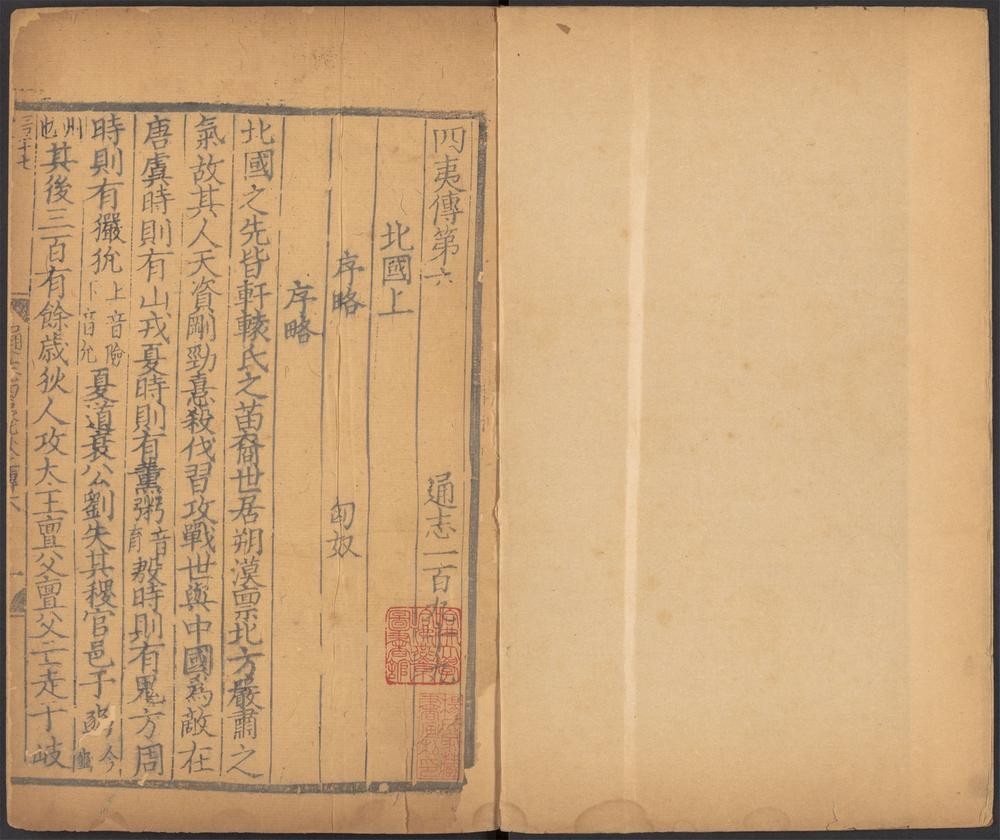 四夷傳第六 通志一百九十九
北國上
序略 匈奴
序略
北國之先皆軒轅氏之苗裔世居朔漠禀北方嚴肅之
氣故其人天資剛勁憙殺伐習攻戰世與中國為敵在
唐虞時則有山戎夏時則有薰粥音育殷時則有鬼方周
時則有獫狁上音險下音允夏道衰公劉失其稷官邑于豳今
州也其後三百有餘歲狄人攻太王亶父亶父亡走于岐